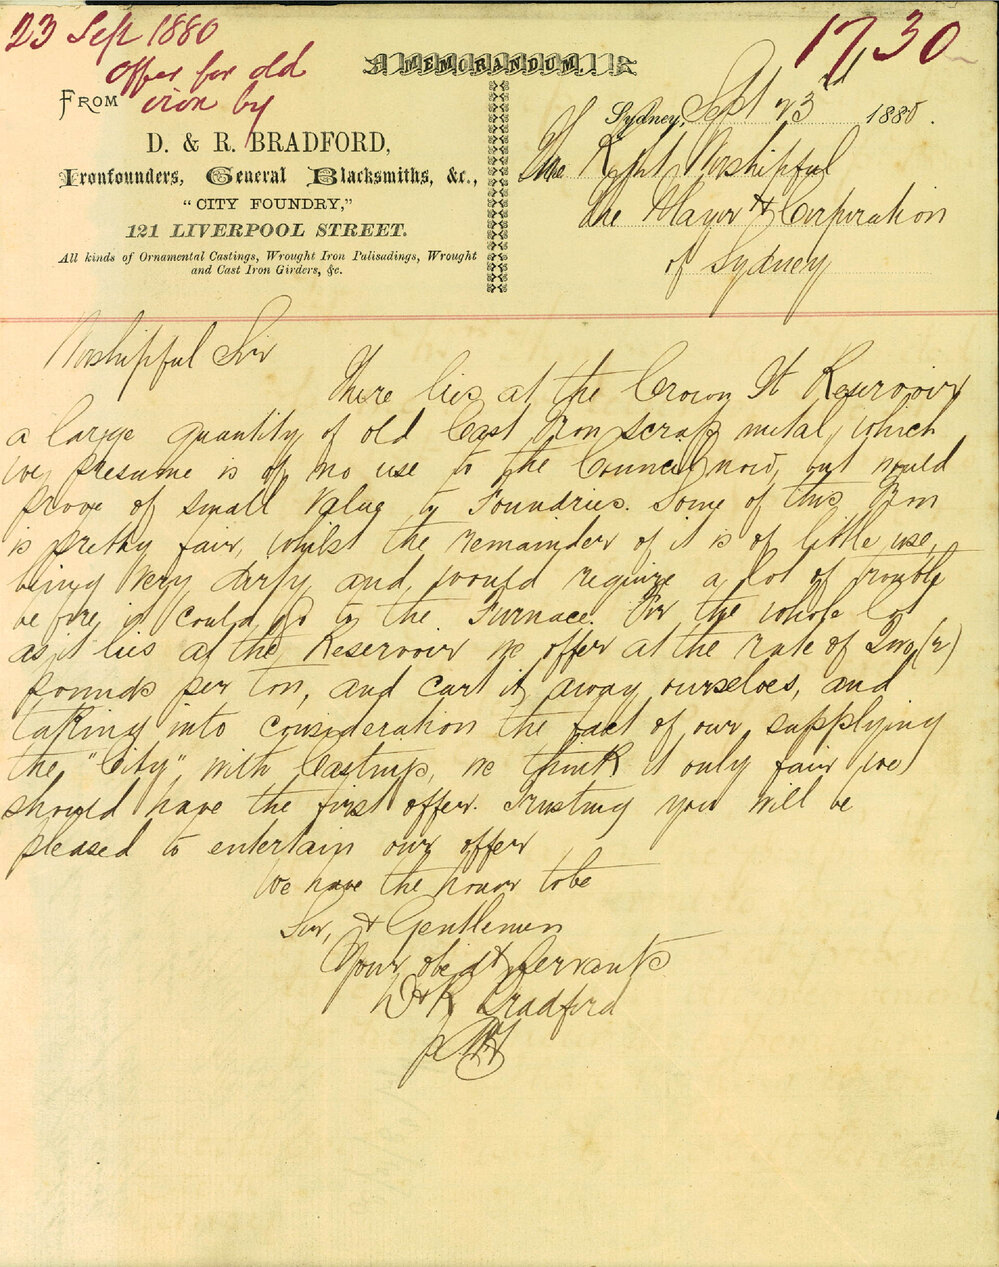 23 Sept 1880
offer for old
iron by
1730
MEMORANDUM.
FROM
D. & R. BRADFORD,
Ironfounders, General Blacksmiths, &c.,
"CITY FOUNDRY,"
121 LIVERPOOL STREET.
All kinds of Ornamental Castings, Wrought Iron Palisadings, Wrought
and Cast Iron Girders, &c.
Sydney, Sept 23rd 1880.
The Right Worshipful
the Mayor & Corporation
of Sydney
Worshipful Sir
There lies at the Crown St Reservoir
a large quantity of old Cast Iron scrap metal, which
we presume is of no use to the Council now, but would
prove of small value to Foundries. Some of this Iron
is pretty fair, whilst the remainder of it is of little use,
being very dirty and, would require a lot of trouble
before it could go to the Furnace. For the whole lot
as it lies at the Reservoir we offer at the rate of Two (2)
pounds per ton, and cart it away ourselves, and
taking into consideration the fact of our supplying
the "City" with Castings, we think it only fair we
should have the first offer. Trusting you will be
pleased to entertain our offer
We have the honor to be
Sir, & Gentlemen
Your obedt Servants
D & R Bradford